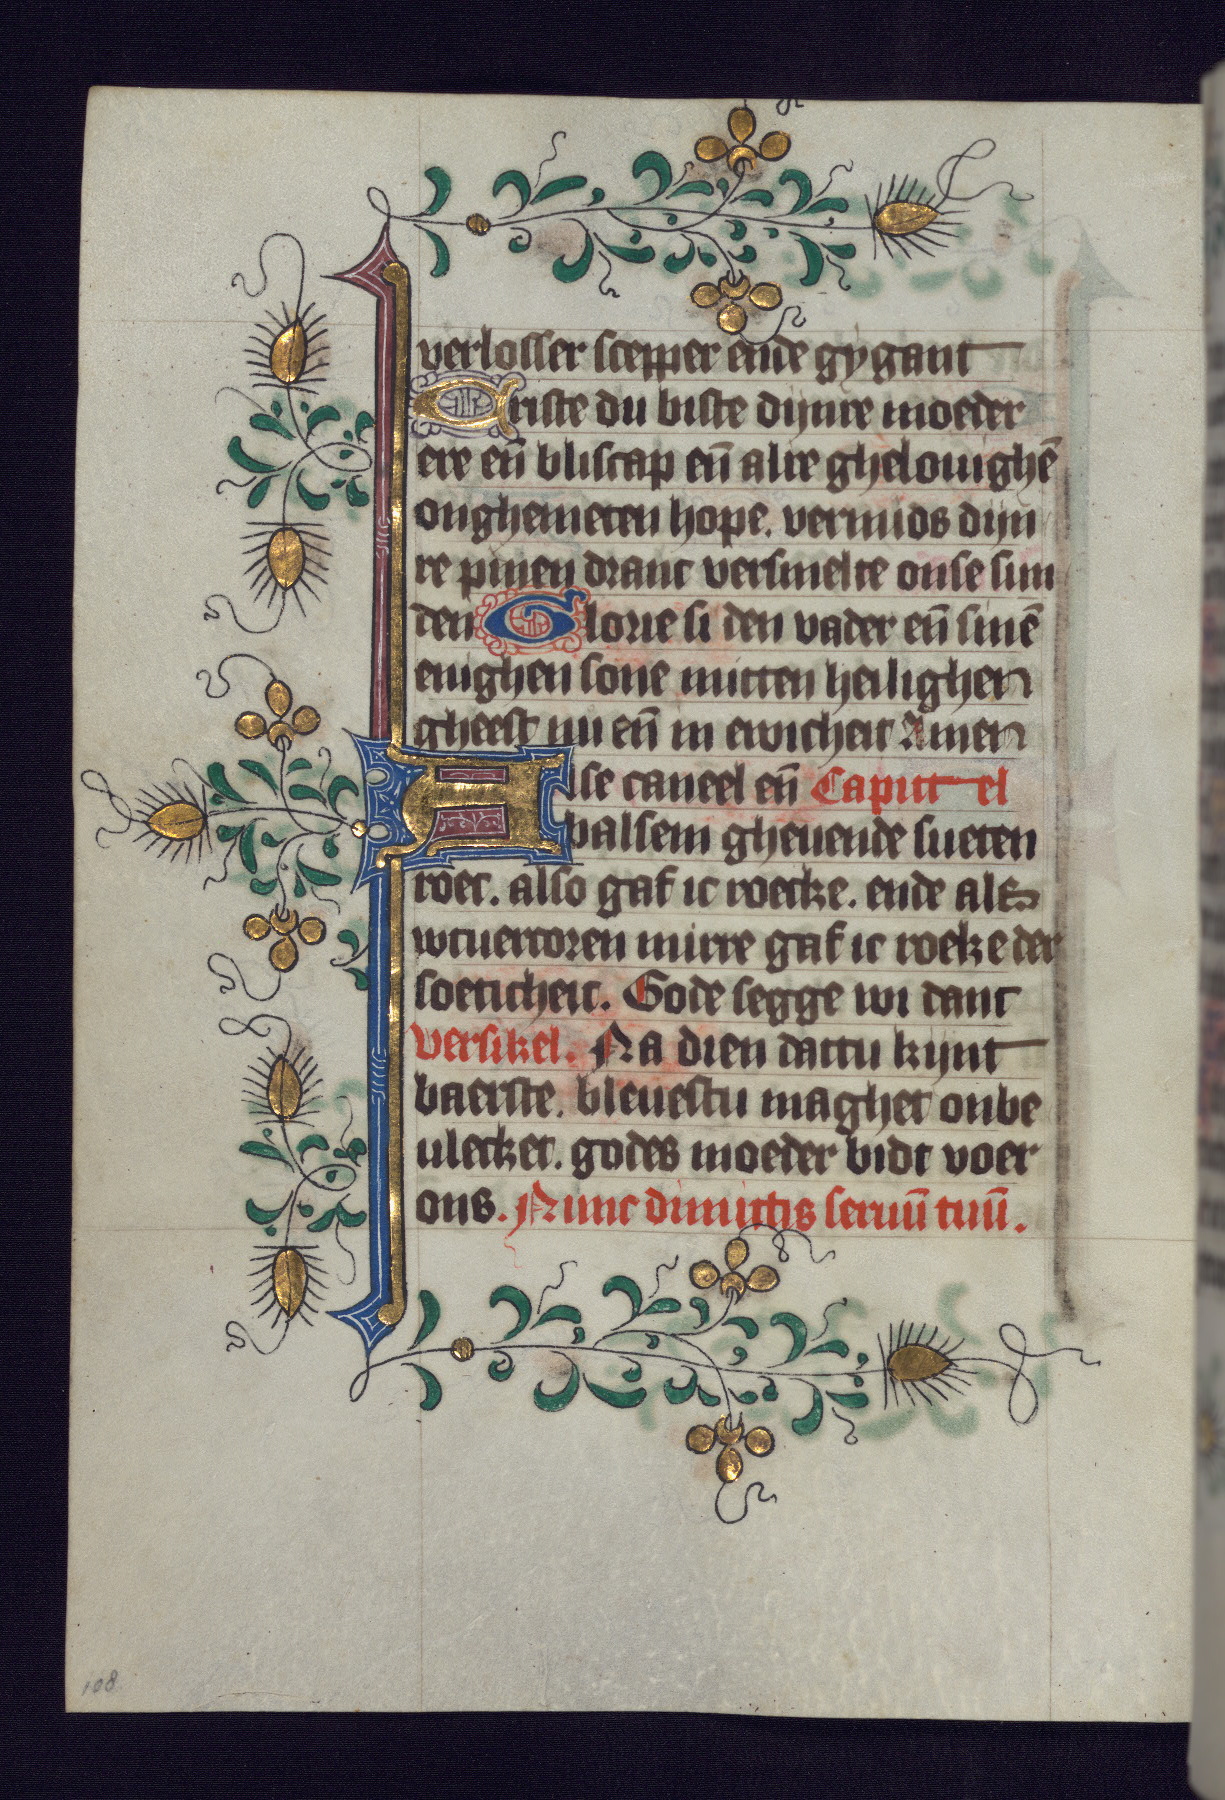 verlosser scepper ende gygant
Criste du biste dijnre moeder
ere eñ bliscap eñ alre ghelouighē
onghemeten hope. vermids dijn
re pinen dranc versmelte onse sun
den Glorie si den vader eñ sinē
enighen sone mitten heilighen
gheest nu eñ in ewicheit Amen
Alse caneel eñ Capittel
balsem gheuende sueten
roec. also gaf ic roecke. ende als
wtuercoren mirre gaf ic roeke der
soeticheit. Gode segge wi danc
versikel. Na dien dattu kijnt
baerste. bleuestu maghet onbe
ulecket. godes moeder bidt voer
ons. Nunc dimittis seruū tuū.
108